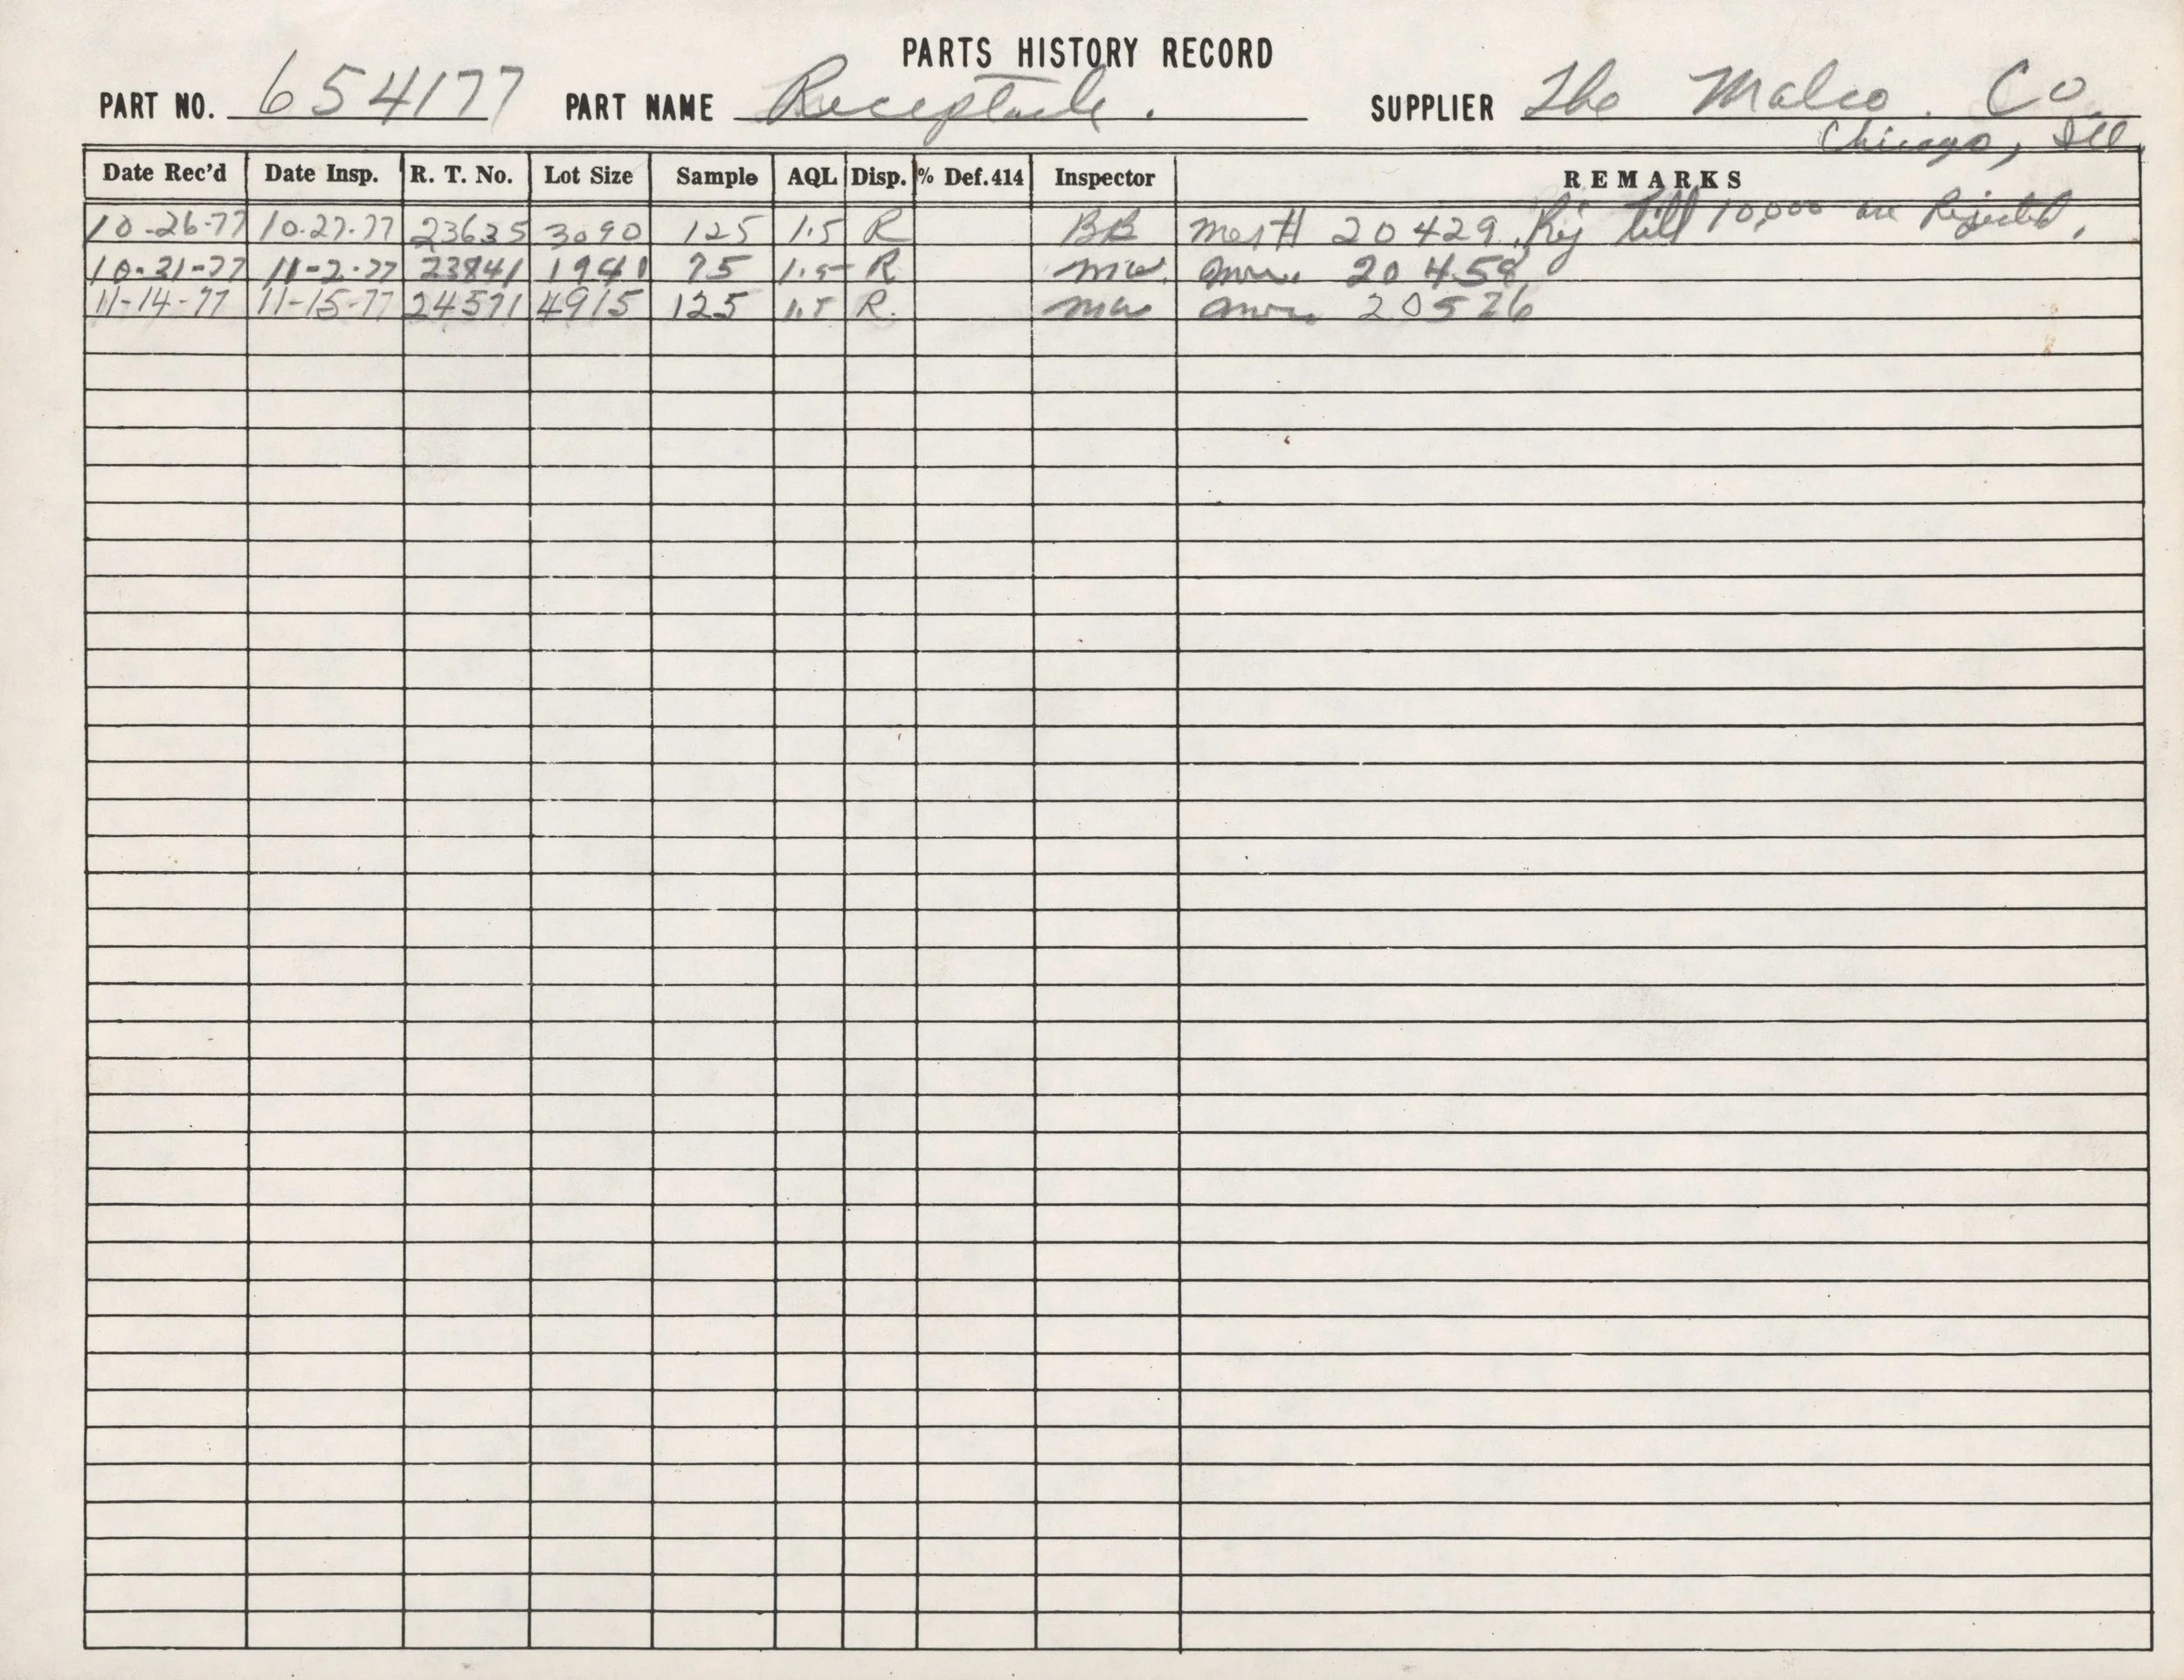 PARTS HISTORY RECORD
PART NO. 654177 PART NAME Receptacle. SUPPLIER The Malco. Co.
Chicago, Ill.
Date Rec'd Date Insp. R. T. No. Lot Size Sample AQL Disp. % Def. 414 Inspector REMARKS
10-26-77 10-27-77 23635 3090 125 1.5 R BB # 20429 Rej till 10,000 are Rejected.
10-31-77 11-2-77 23841 1941 75 1.5 R mw 20458
11-14-77 11-15-77 24571 4915 125 1.5 R. mw 20526